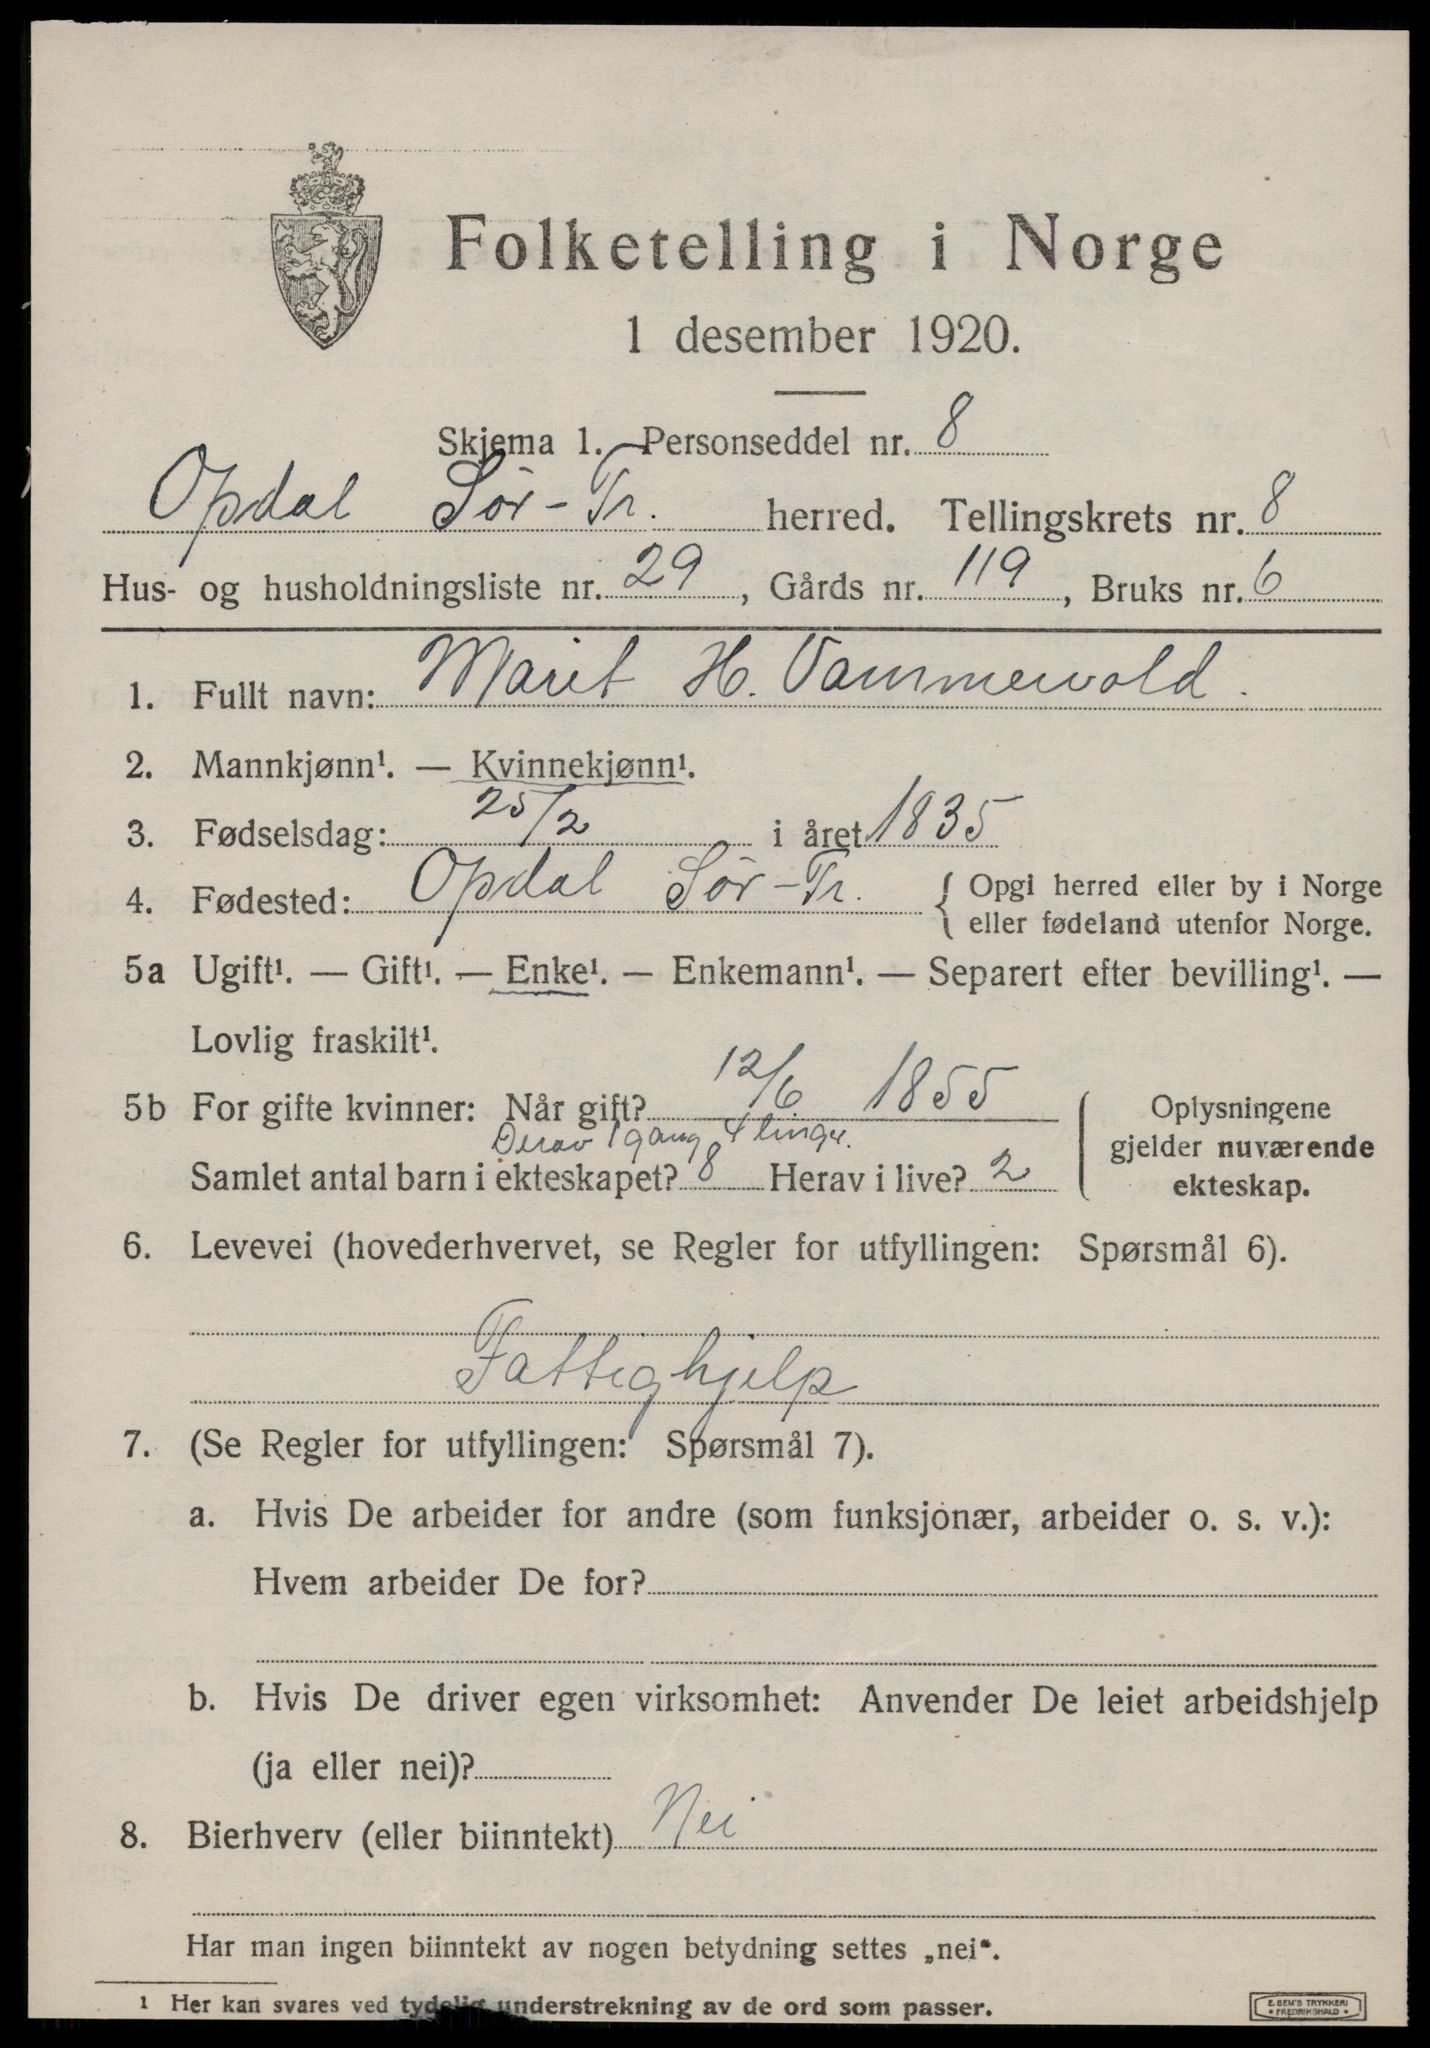 Folketelling i Norge
1 desember 1920.
Skjema 1. Personseddel nr. 8
Opdal Sör-Tr. herred. Tellingskrets nr. 8
Hus- og husholdningsliste nr. 29, Gårds nr. 119, Bruks nr. 6
1. Fullt navn: Marit H. Vammervold.
2. Mannkjønn¹. — Kvinnekjønn¹.
3. Fødselsdag: 25/2 i året 1835
4. Fødested: Opdal Sör-Tr. { Opgi herred eller by i Norge
eller fødeland utenfor Norge.
5a Ugift¹. — Gift¹. — Enke¹. — Enkemann¹. — Separert efter bevilling¹. —
Lovlig fraskilt¹.
5b For gifte kvinner: Når gift? 12/6 1855
Derav 1 gang
Samlet antal barn i ekteskapet? 8 Herav i live? 2
Oplysningene
gjelder nuværende
ekteskap.
6. Levevei (hovederhvervet, se Regler for utfyllingen: Spørsmål 6).
Fattighjelp
7. (Se Regler for utfyllingen: Spørsmål 7).
a. Hvis De arbeider for andre (som funksjonær, arbeider o. s. v.):
Hvem arbeider De for?
b. Hvis De driver egen virksomhet: Anvender De leiet arbeidshjelp
(ja eller nei)?
8. Bierhverv (eller biinntekt) Nei
Har man ingen biinntekt av nogen betydning settes „nei“.
1 Her kan svares ved tydelig understrekning av de ord som passer.
E. SEM'S TRYKKERI
FREDRIKSHALD